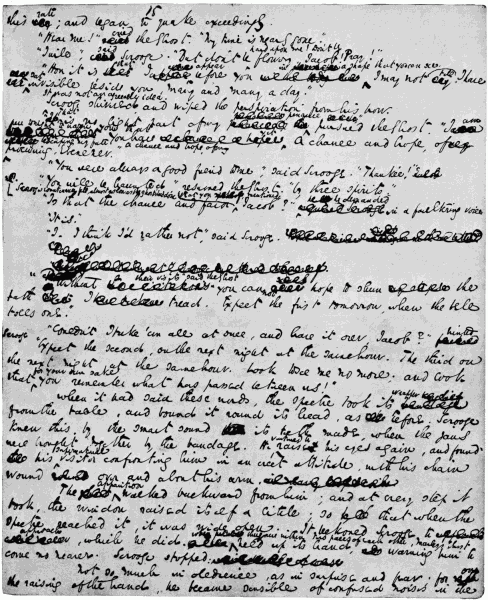 15
this rate; and began to quake exceedingly.
"Hear me!" cried the Ghost. "My time is nearly gone."
"I will," said Scrooge. "But don't be hard upon me! Don't be flowery, Jacob! Pray!"
"How it is that I appear before you in a shape that you can see, I may not tell. I have
sat invisible beside you many and many a day."
It was not an agreeable idea.
Scrooge shivered, and wiped the perspiration from his brow.
"That is no light part of my penance" pursued the Ghost. "I am
here to-night to warn you that you have yet a chance and hope of
escaping my fate. A chance and hope of my
procuring, Ebenezer."
"You were always a good friend to me," said Scrooge. "Thank'ee!"
"You will be haunted" resumed the Ghost, "by three spirits."
"Is that the chance and hope you mentioned, Jacob?" he demanded in a faltering voice
"It is."
"I—I think I'd rather not," said Scrooge.
"Without their visits" said the Ghost "you cannot hope to shun the
path I tread. Expect the first tomorrow, when the bell
tolls one."
"Couldn't I take 'em all at once, and have it over, Jacob?" hinted
Scrooge
"Expect the second, on the next night at the same hour. The third on
the next night, at the same hour. Look to see me no more; and look
that, for your own sake you remember what has passed between us!"
When it had said these words, the spectre took its wrapper
from the table, and bound it round its head, as before. Scrooge
knew this, by the smart sound its teeth made, when the jaws
were brought together by the bandage. He ventured to raise his eyes again, and found
his supernatural visitor confronting him in an erect attitude, with his chain
wound over and about his arm.
The apparition walked backward from him; and at every step it
took, the window raised itself a little; so that when the
spectre reached it, it was wide open. It beckoned Scrooge to
approach, while he did. When they were within two paces of each other, Marley's Ghost
held up its hand, warning him to
come no nearer. Scrooge stopped.
Not so much in obedience, as in surprise and fear: for on
the raising of the hand, he became sensible of confused noises in the